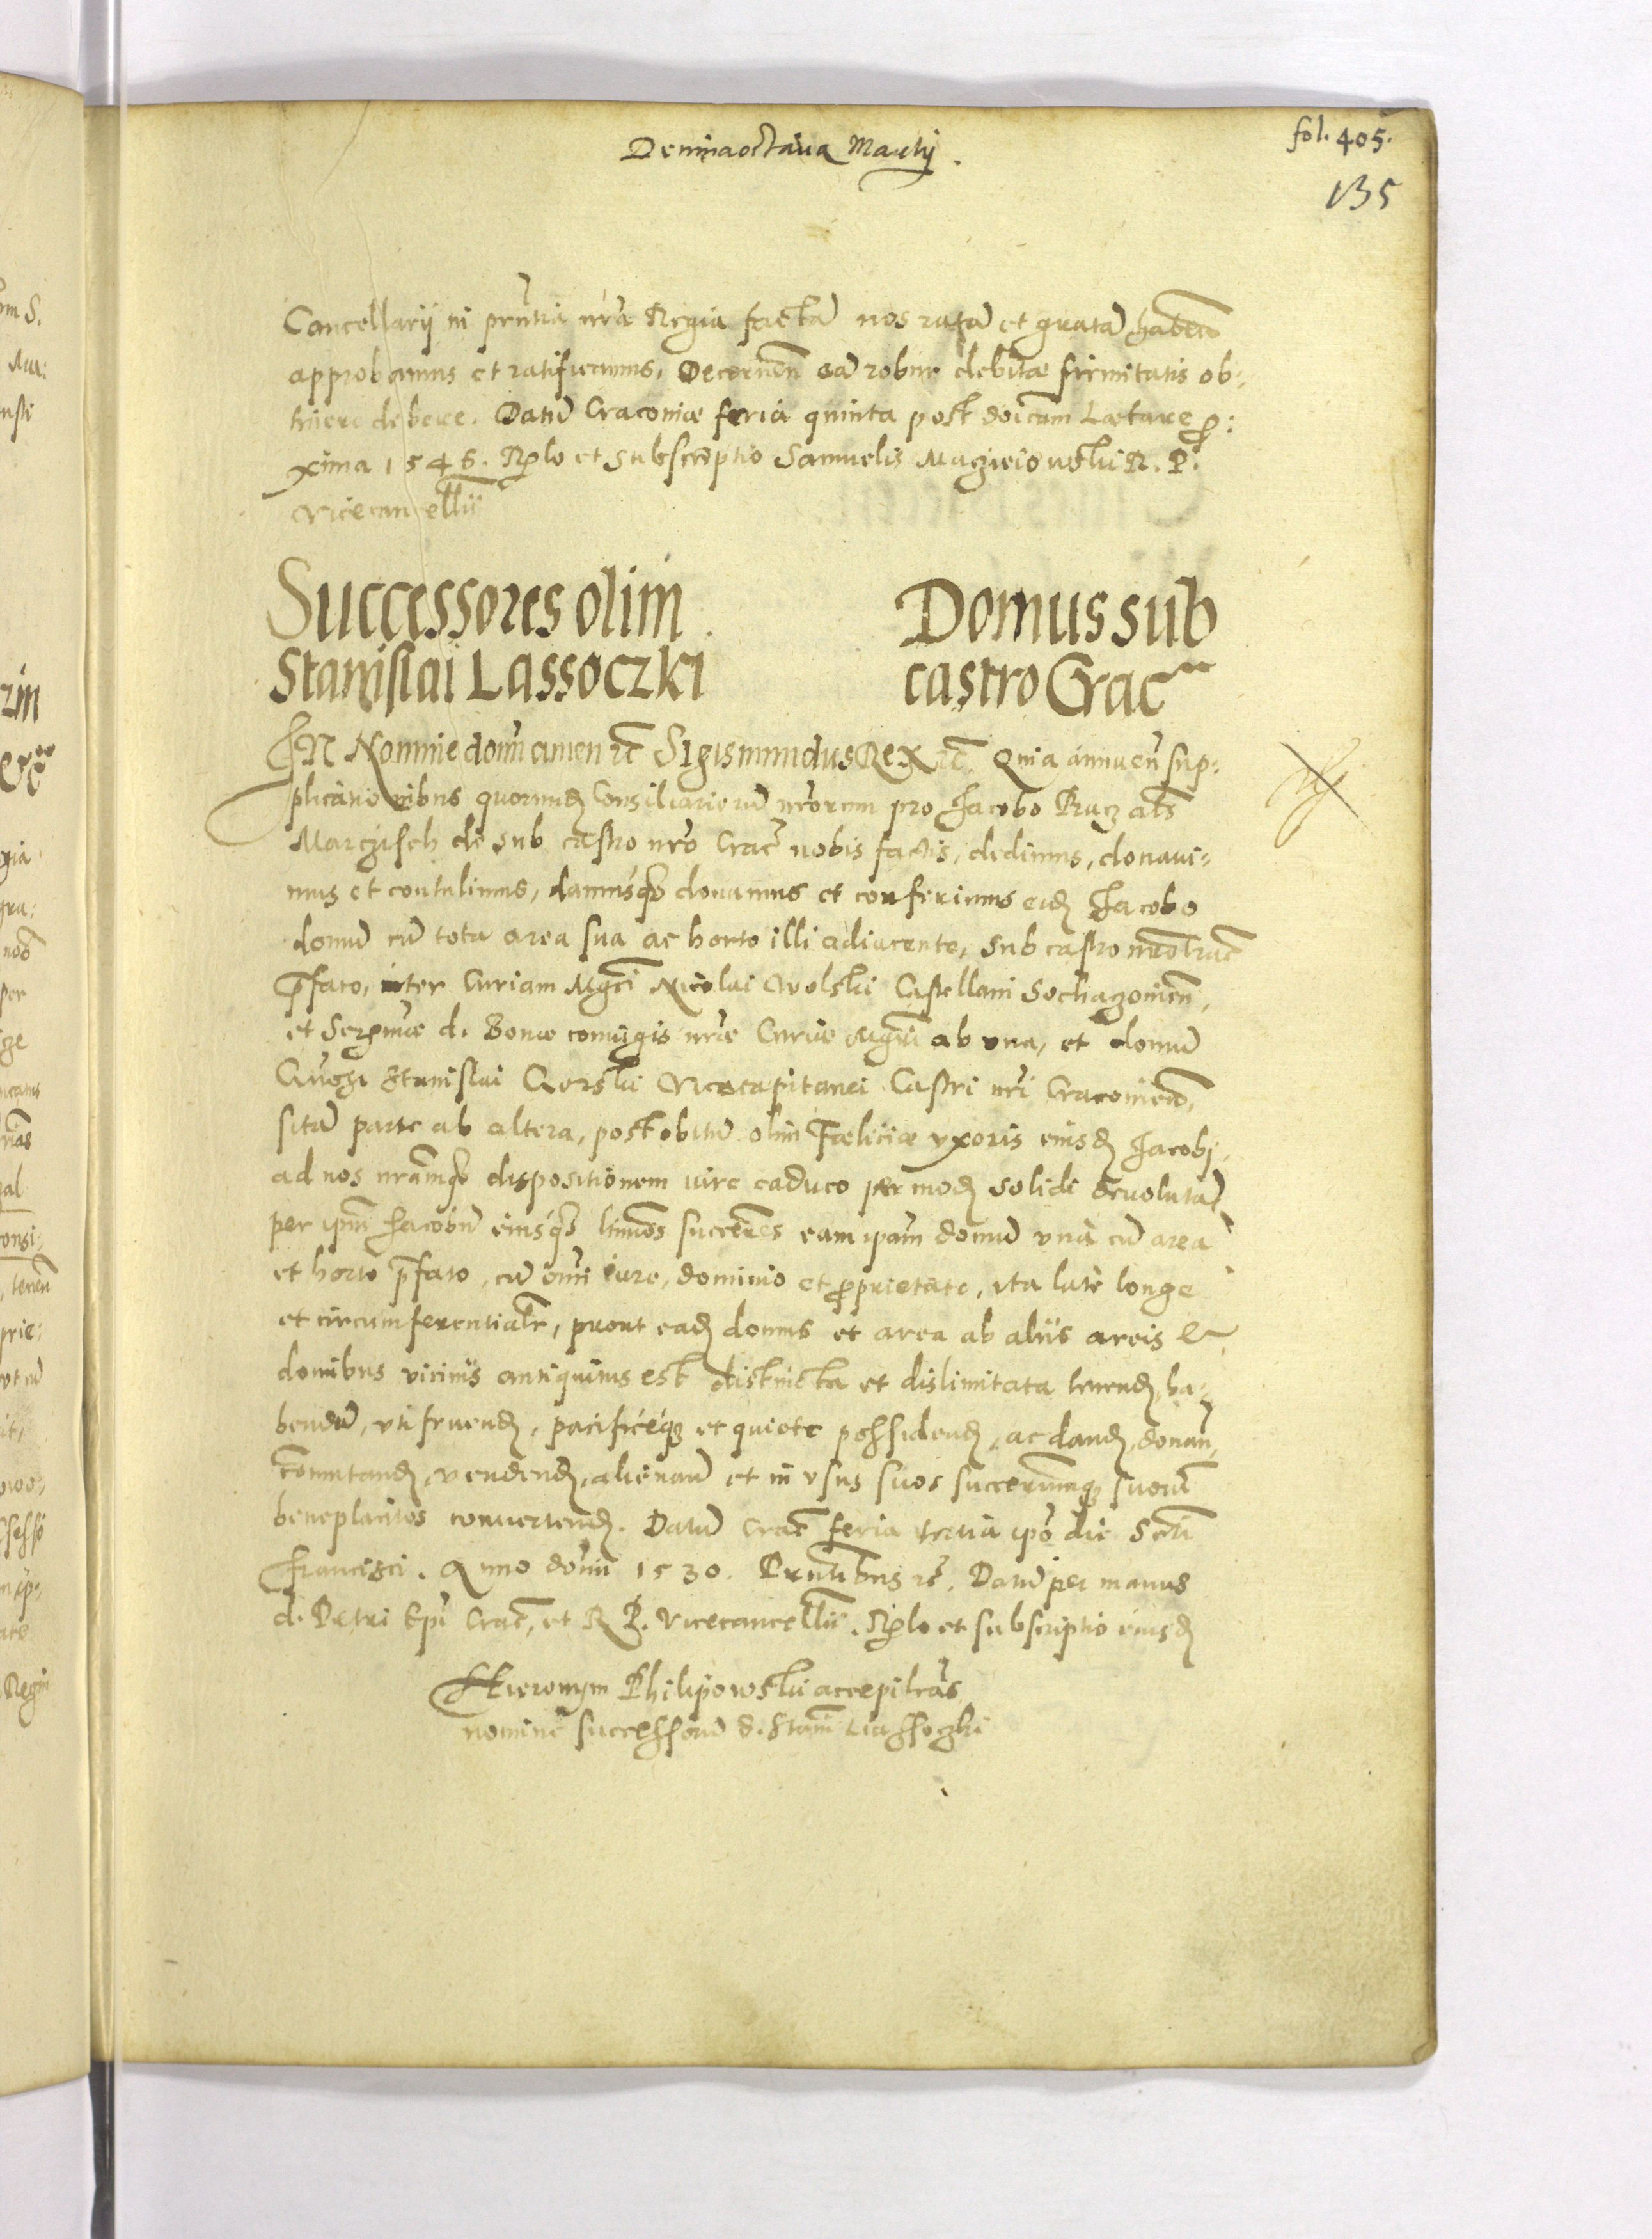 Decimaoctaua Martij.
fol. 405.
135
Cancellarij in pñtia nr̃a Regia factã nos ratã et gratã habeñ
approbamus et ratificamus, Decerneñ eã robur debitæ firmitatis ob:
tinere debere. Datũ Craconiæ feria quinta post doicam Lætare ꝓ:
xima 1546. Rl̃o et subscriptio Samuelis Maczieiowski R. P.
vicecancellii
Successores olim
Stanislai Lassoczki
Domus sub
castro Crac
IN Nomine domi amen etc̃ Sigismundus Rex etc̃. Quia annueñ sup:
plicationibus quorund̃ Consiliariorũ nr̃orum pro Jacobo Racz als̃
Marczisch de sub castro nr̃o Crac̃ nobis factis, dedimus, donaui:
mus et contulimus, damusq̃ donamus et conferimus eid̃ Jacobo
domũ cũ tota area sua ac horto illi adiacente, sub castro nr̃o Crac̃
p̃fato, inter Curiam Mgci Nicolai Wolski Castellani Sochazonien̄,
et Serẽmæ d. Bonæ coniugis nr̃æ Curiæ Mgr̃i ab vna, et domũ
Gñosi Stanislai Gorski Vicecapitanei Castri nr̃i Craconieñ,
sitã parte ab altera, post obitũ olim Fæliciæ vxoris eiusd̃ Jacobj
ad nos nr̃amq̃ dispositionem iure caduco per mod̃ solidi deuolutã
per ipm̃ Jacobũ eiusq̃ ltimos succeres eam ipam̃ domũ vnà cũ area
et horto p̃fato, cũ om̃i iure, dominio et ꝓprietate, ita latè longe
et circumferentialr̃, prout ead̃ domus et area ab alijs areis &
domibus vicinis antiquitus est distincta et dislimitata tenend̃, ha:
bendũ, vti fruend̃, pacificeq̃ et quiete possidend̃, ac dand̃, donan̄,
com̃utand̃, vendend̃, alienand̃ et in vsus suos succerumq̃ suorũ
beneplacitos conuertend̃. Datũ Crac̃ feria tertia ipo die Scti
Francisci. Anno domi 1530. Pñtibus etc̃. Datũ per manus
d. Petri Epi Crac̃, et R. P. Vicecancellii. Rl̃o et subscriptio eiusd̃
Hieronym Philipowski accepit lr̃as
nomine successorũ d. Stani Liassoczki